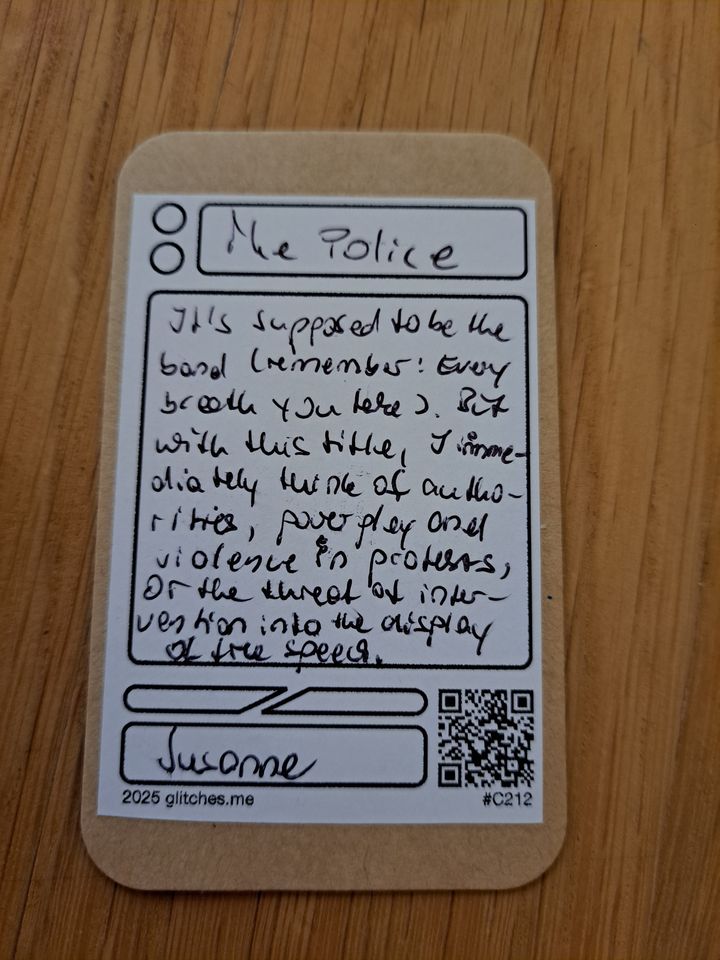 The Police
It's supposed to be the
band (remember: Every
breath you take). But
with this title, I imme-
diately think of autho-
rities, powerplay and
violence in protests,
or the threat of inter-
vention into the display
of free speech.
Susanne
2025 glitches.me
#C212